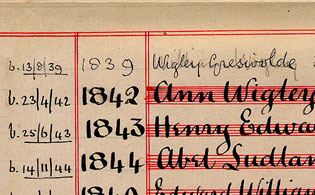 b. 13/8/39 1839 Wigley Greswolde
b. 23/4/42 1842 Ann Wigley
b. 25/6/43 1843 Henry Edwa
b. 14/11/44 1844 Abel Ludlam
Edward William